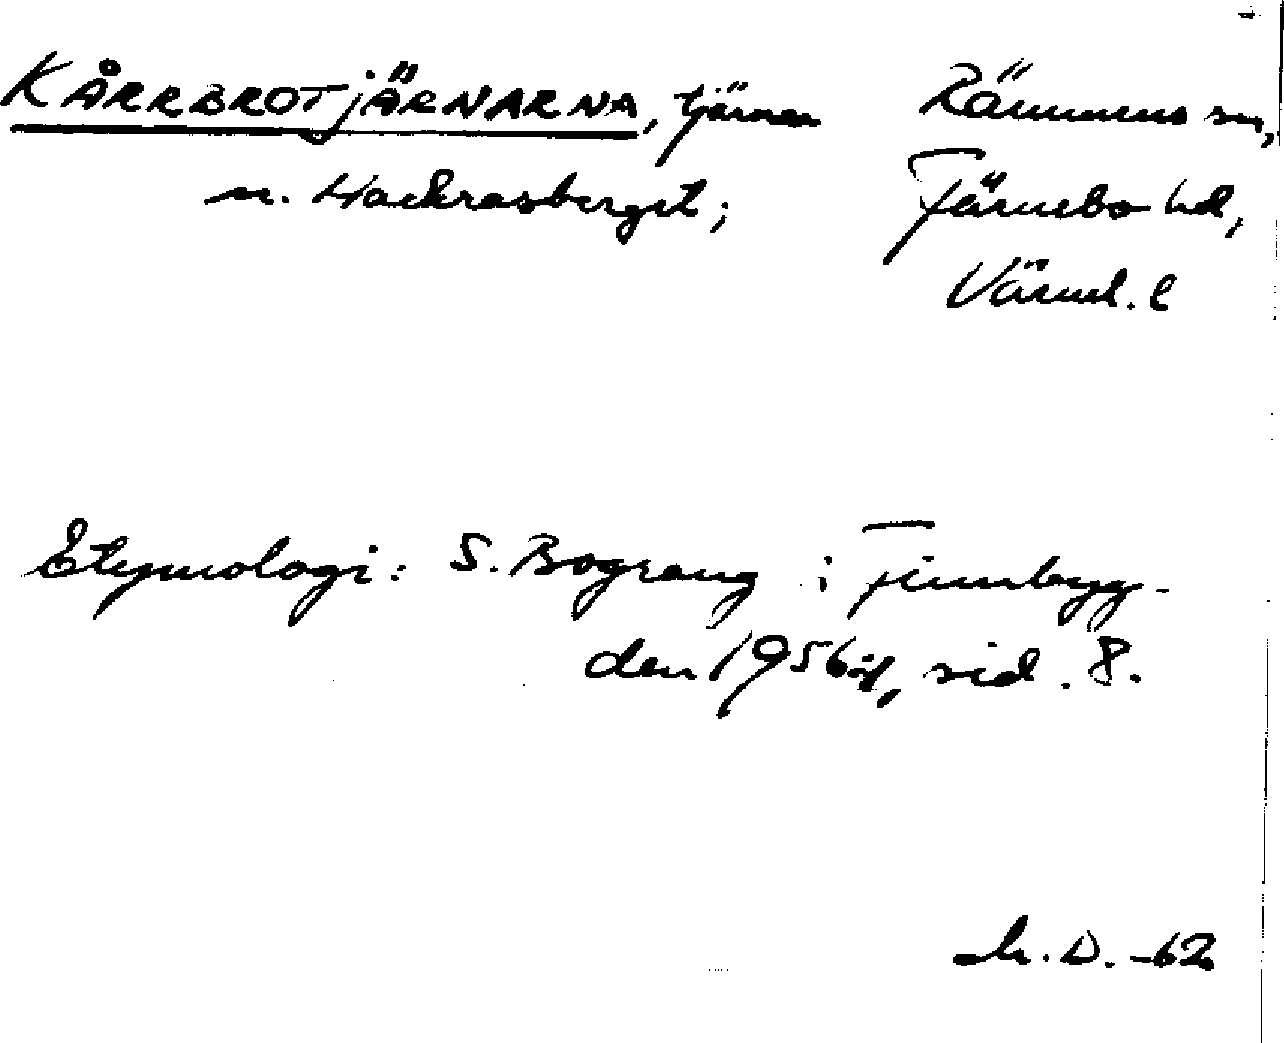 KÅRRBROTJÄRNARNA, tjärnar
Rämmens sn,
n. Hackrasberget;
Färnebo hd,
Värml. l
Etymologi: S. Bograng i Finnbyg-
den 1956, sid. 8.
D. -62